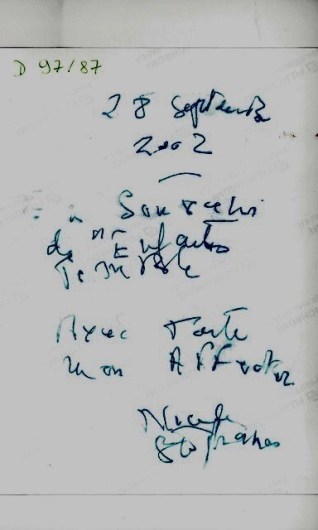 D 97/87
28 Septembre
2002
en Souvenir
des "Enfants
Terribles
Avec Toute
mon Affection
Nicole
Stéphane